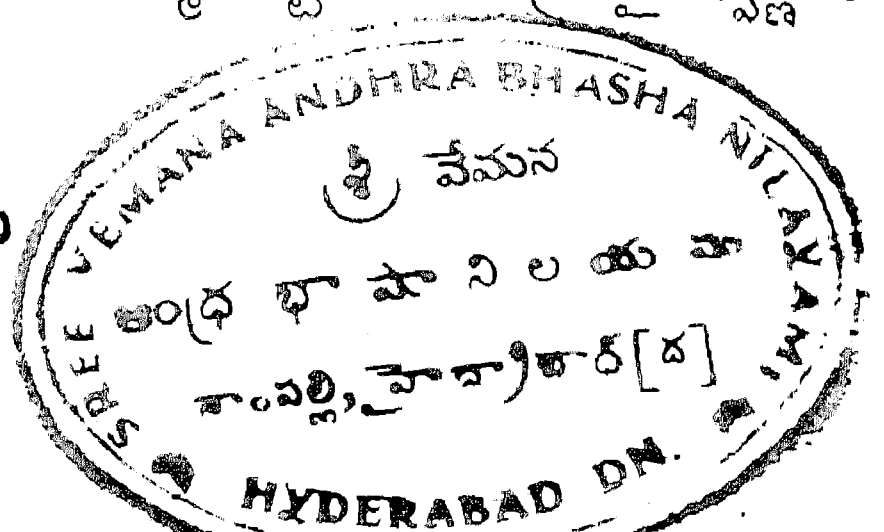 SREE VEMANA ANDHRA BHASHA NILAYAM,
శ్రీ వేమన
ఆంధ్ర భాషా నిలయము
నాంపల్లి, హైద్రాబాద్ [ద]
HYDERABAD DN.